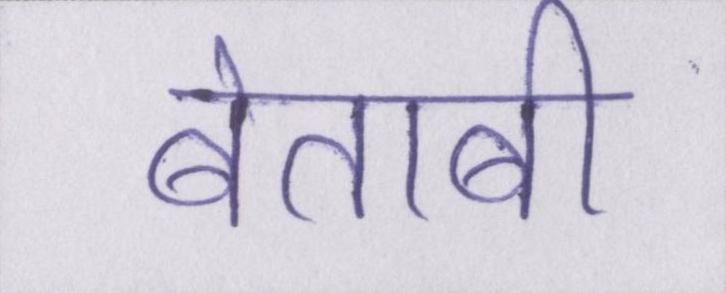 बेताबी